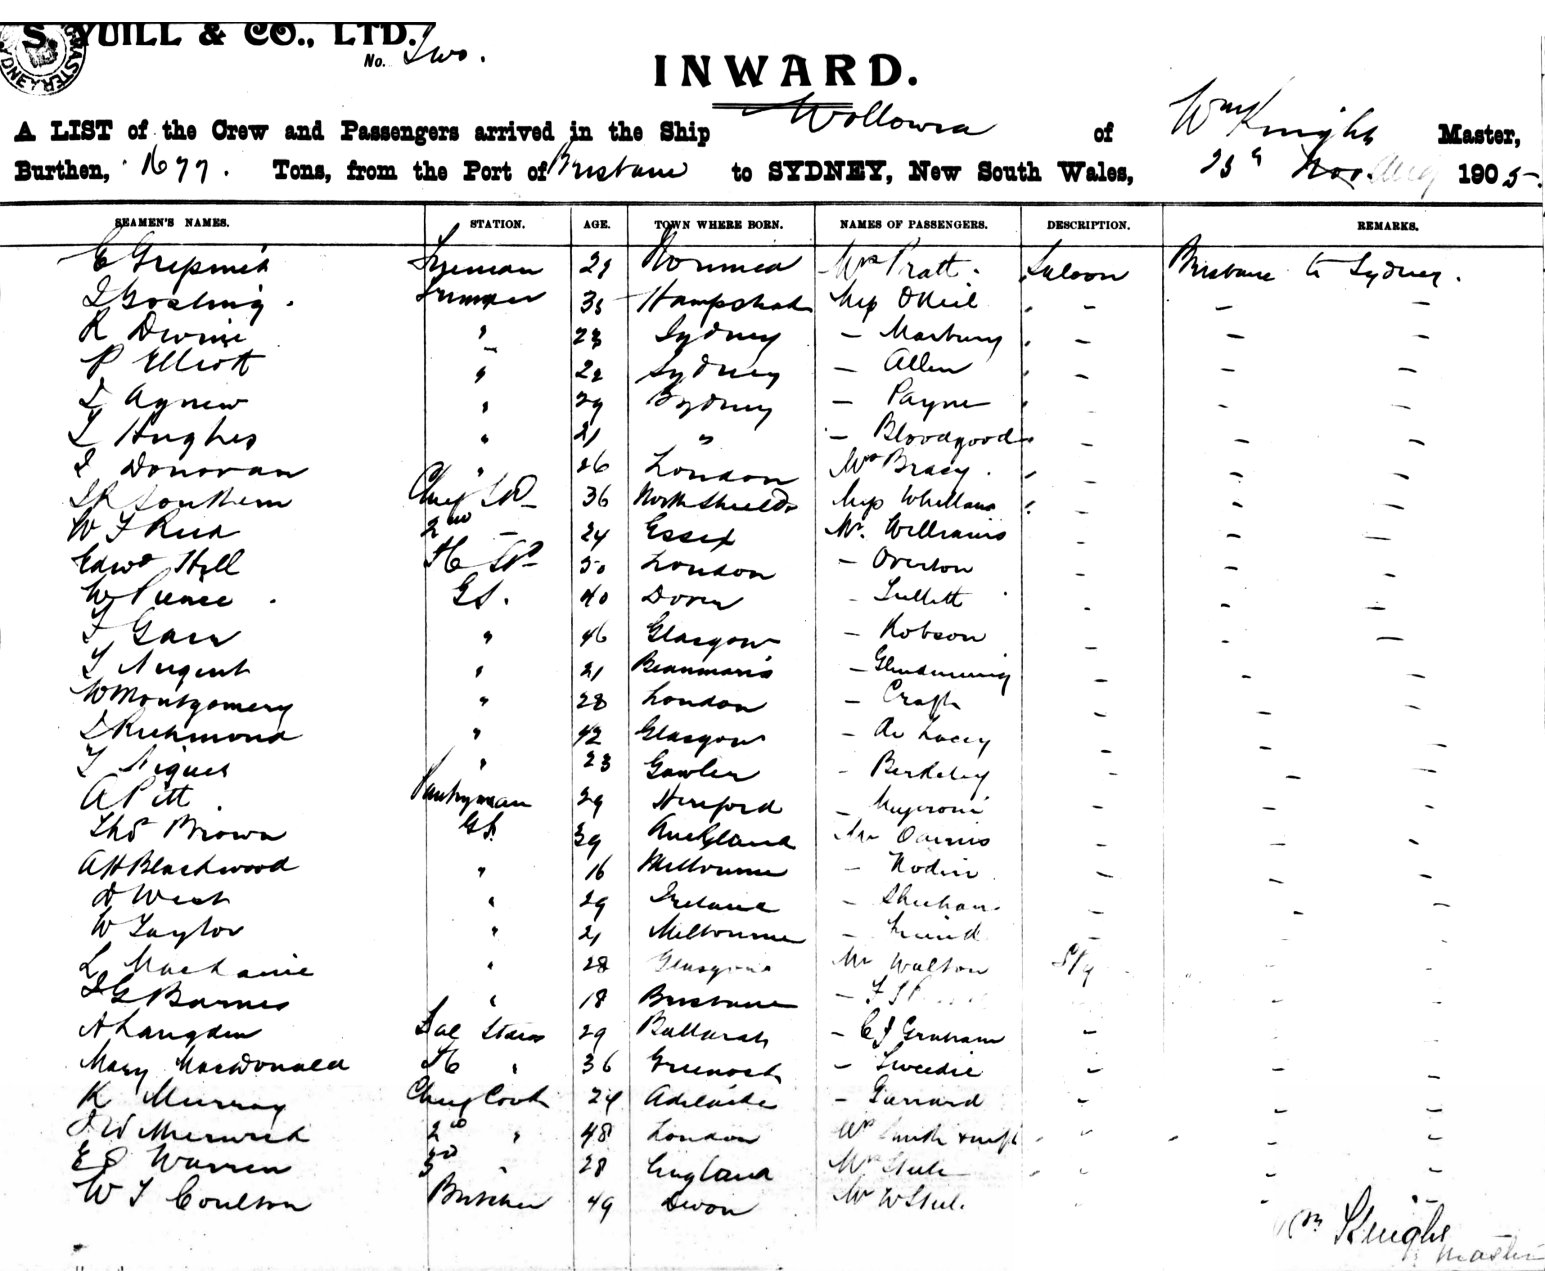 S. YUILL & CO., LTD.
No. Two.
INWARD.
A LIST of the Crew and Passengers arrived in the Ship Wollowra of Wm Knight Master,
Burthen, 1677. Tons, from the Port of Brisbane to SYDNEY, New South Wales, 25th Aug 1905.
SEAMEN'S NAMES. STATION. AGE. TOWN WHERE BORN. NAMES OF PASSENGERS. DESCRIPTION. REMARKS.
E Fireman 29 Mrs Pratt. Saloon Brisbane to Sydney.
J Gosling. Trimmer 35 Hampstead Miss O'Neil " - - -
R Divine " 23 Sydney - Marbury " - - -
P Elliott " 22 Sydney - Allen " - - -
J Agnew " 29 Sydney - Payne " - - -
T Hughes " 21 " - Bloodgood " - - -
J Donovan " 26 London Mrs Bracy. " - - -
Southern Chief Std 36 North Shields Miss Whillans " - - -
W F Reed 2nd - 24 Essex Mr. Williams - - -
Edwd Hill Std 50 London - Overton - - -
W Pearce. GS. 40 Dover - Tullett - - -
" 46 Glasgow - Robson - - -
T Nugent " 21 Beaumaris - Glendinning - - -
W Montgomery " 28 London - - - -
J Richmond " 42 Glasgow - De Lacey - - -
" 23 Gawler - Berkeley - - -
A Pitt. Pantryman 29 Hereford - - - -
Thos Brown GS. 39 Auckland Mr - - -
A H Blackwood " 16 Melbourne - Nodin - - -
D West " 29 Ireland - Sheehan - - -
W Taylor " 21 Melbourne - Friend -
L " 28 Glasgow Mr Walton S/g
J G Barnes " 18 Brisbane -
A Langdon Sal Stdss 29 Ballarat - C J Graham - - -
Mary MacDonald " 36 Greenock - Tweedie - - -
K Murray Chief Cook 24 Adelaide - Garrard - - -
2nd " 48 London Mr Smith & wife " " - -
E S Warren 3rd " 28 England Mrs Steel " " - -
W T Coulson Butcher 49 Devon Mr W Steel. " - -
Wm Knight
Master